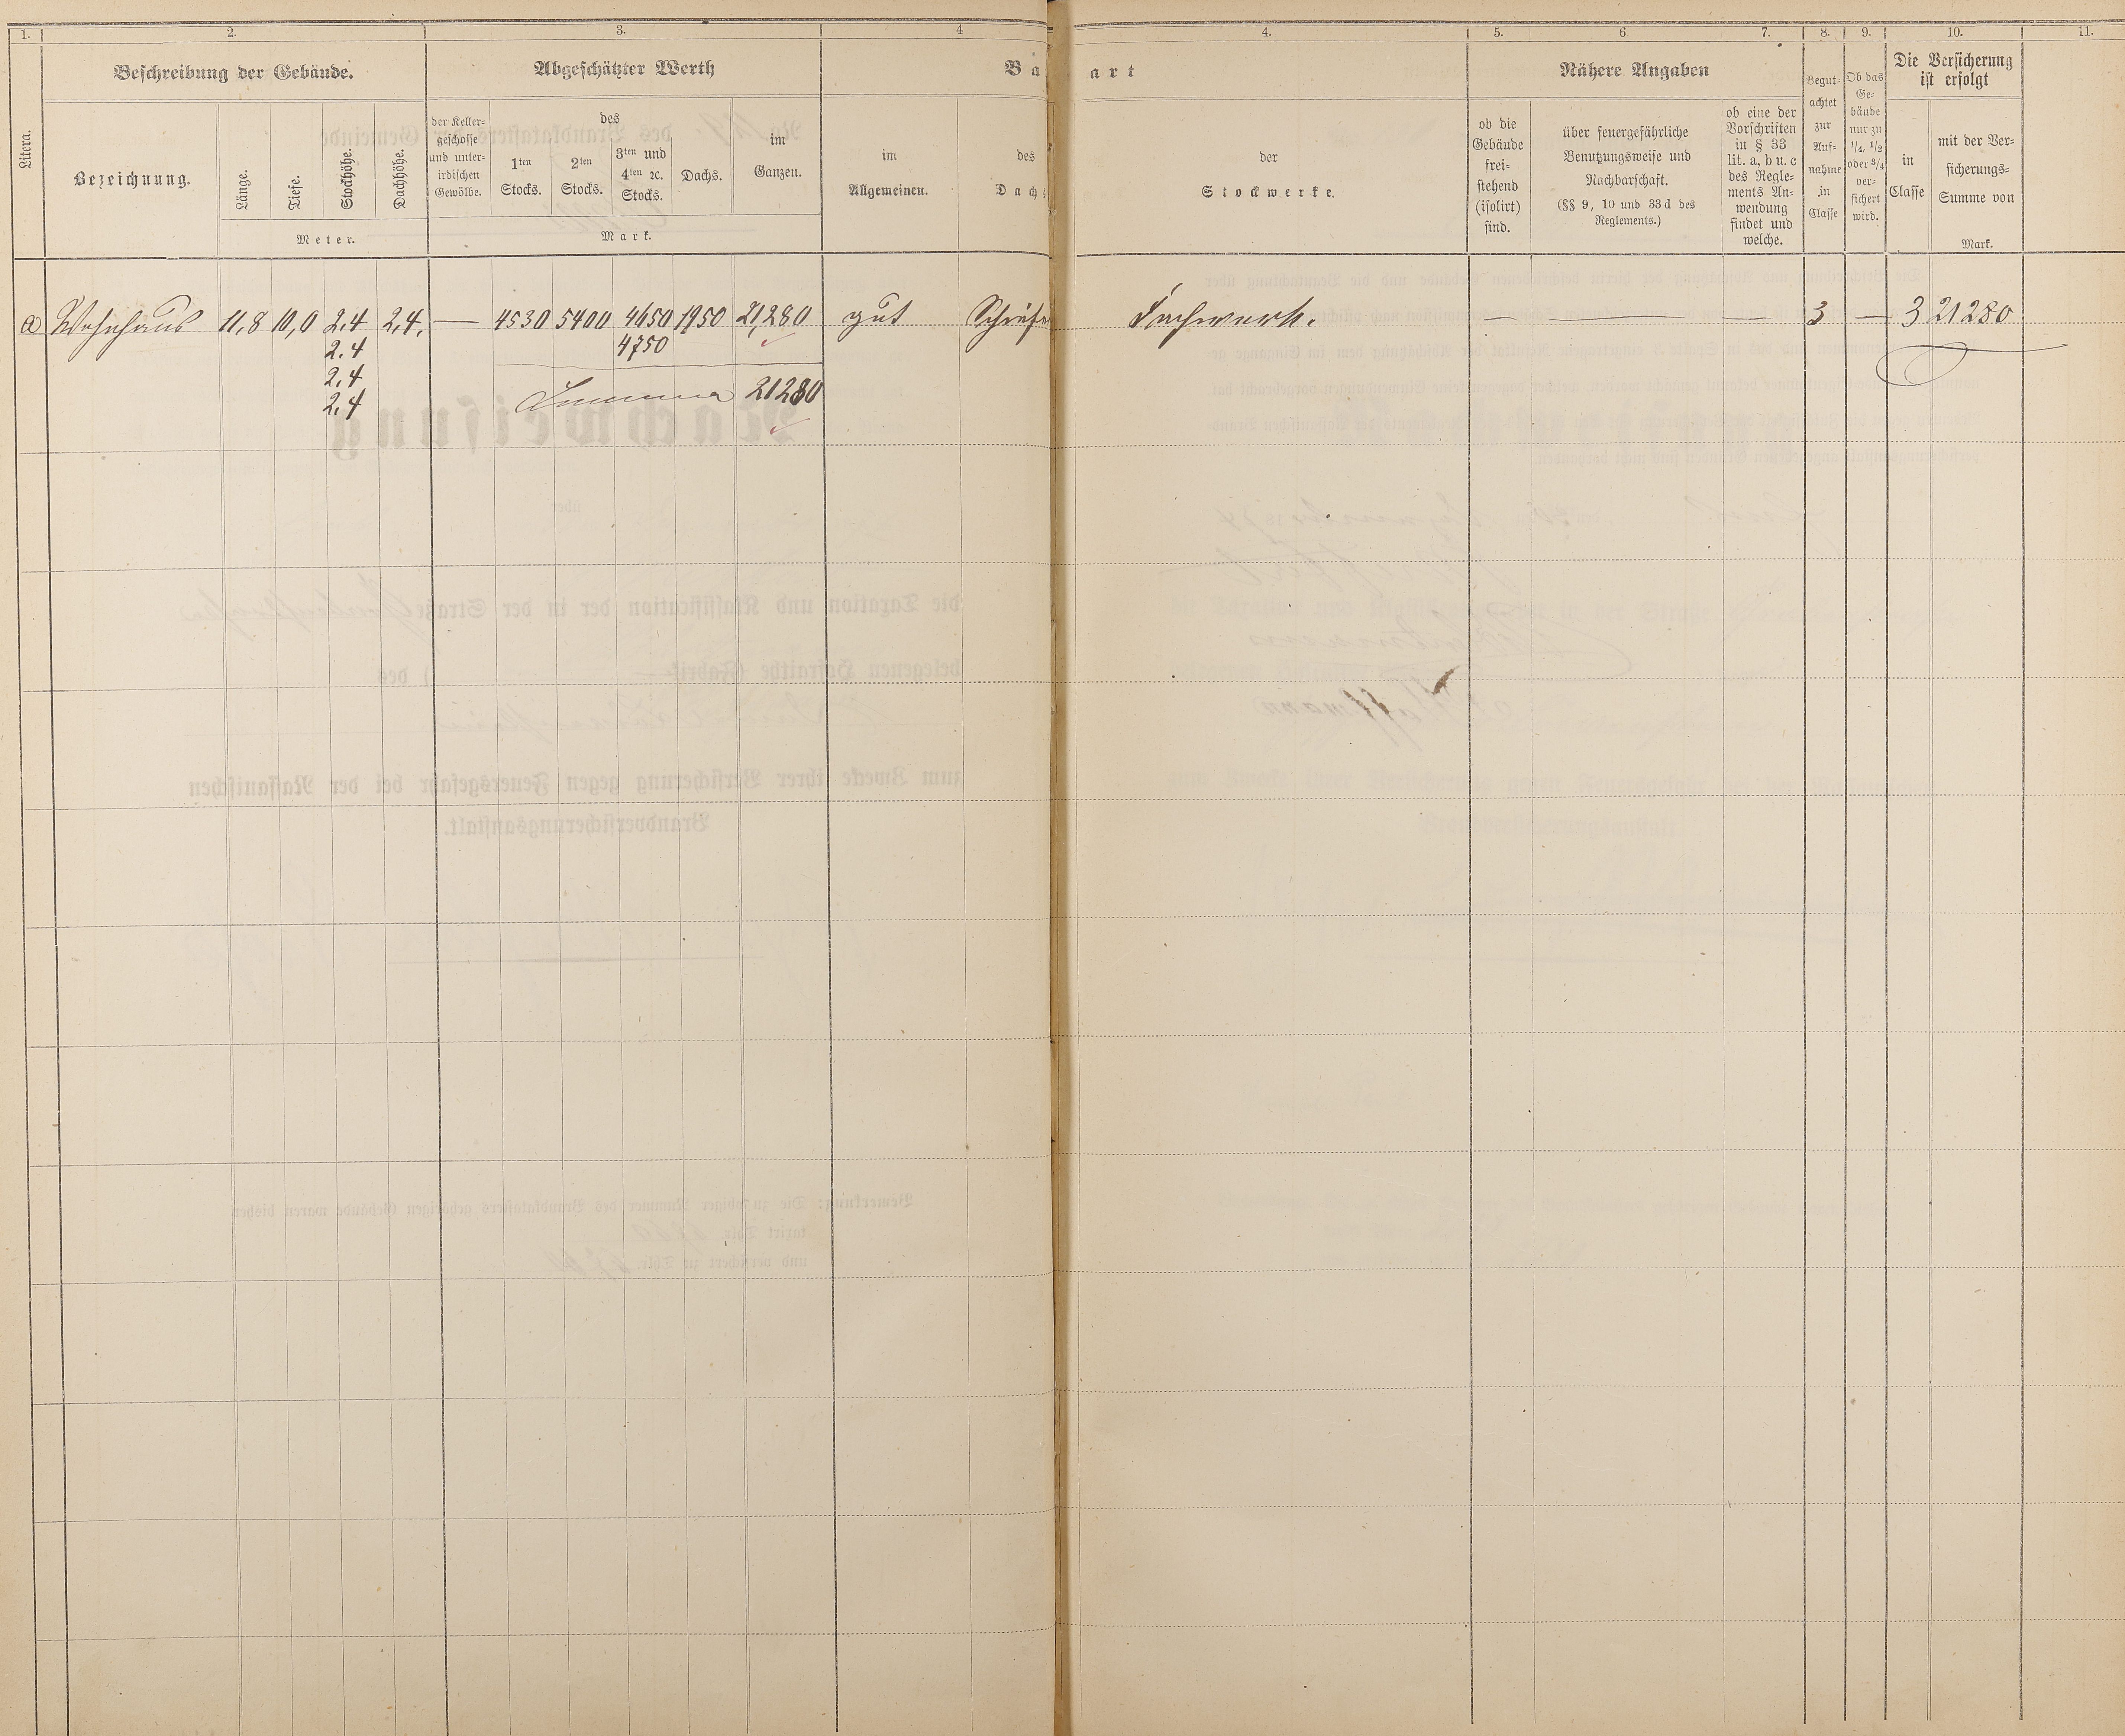 1. 2. 3. 4 4. 5. 6. 7. 8. 9. 10. 11.
Litera.
Beschreibung der Gebäude.
Bezeichnung.
Länge.
Tiefe.
Stockhöhe.
Dachhöhe.
Meter.
Abgeschätzter Werth
der Keller-
geschosse
und unter-
irdischen
Gewölbe.
des
1ten
Stocks.
2ten
Stocks.
3ten und
4ten ꝛc.
Stocks.
Dachs.
im
Ganzen.
Mark.
Ba art
im
Allgemeinen.
des
Dach
der
Stockwerke.
Nähere Angaben
ob die
Gebäude
frei-
stehend
(isolirt)
sind.
über feuergefährliche
Benutzungsweise und
Nachbarschaft.
(§§ 9, 10 und 33 d des
Reglements.)
ob eine der
Vorschriften
in § 33
lit. a, b u. c
des Regle-
ments An-
wendung
findet und
welche.
Begut-
achtet
zur
Auf-
nahme
in
Classe
Ob das
Ge-
bäude
nur zu
1/4, 1/2
oder 3/4
ver-
sichert
wird.
Die Versicherung
ist erfolgt
in
Classe
mit der Ver-
sicherungs-
Summe von
Mark.
a Wohnhaus 11,8 10,0 2,4 2,4. — 4530 5400 4650 1950 21,280 gut Schiefe Fachwerk. — — — 3 — 3 21280
2,4 4750
2,4
2,4 Summa 21280